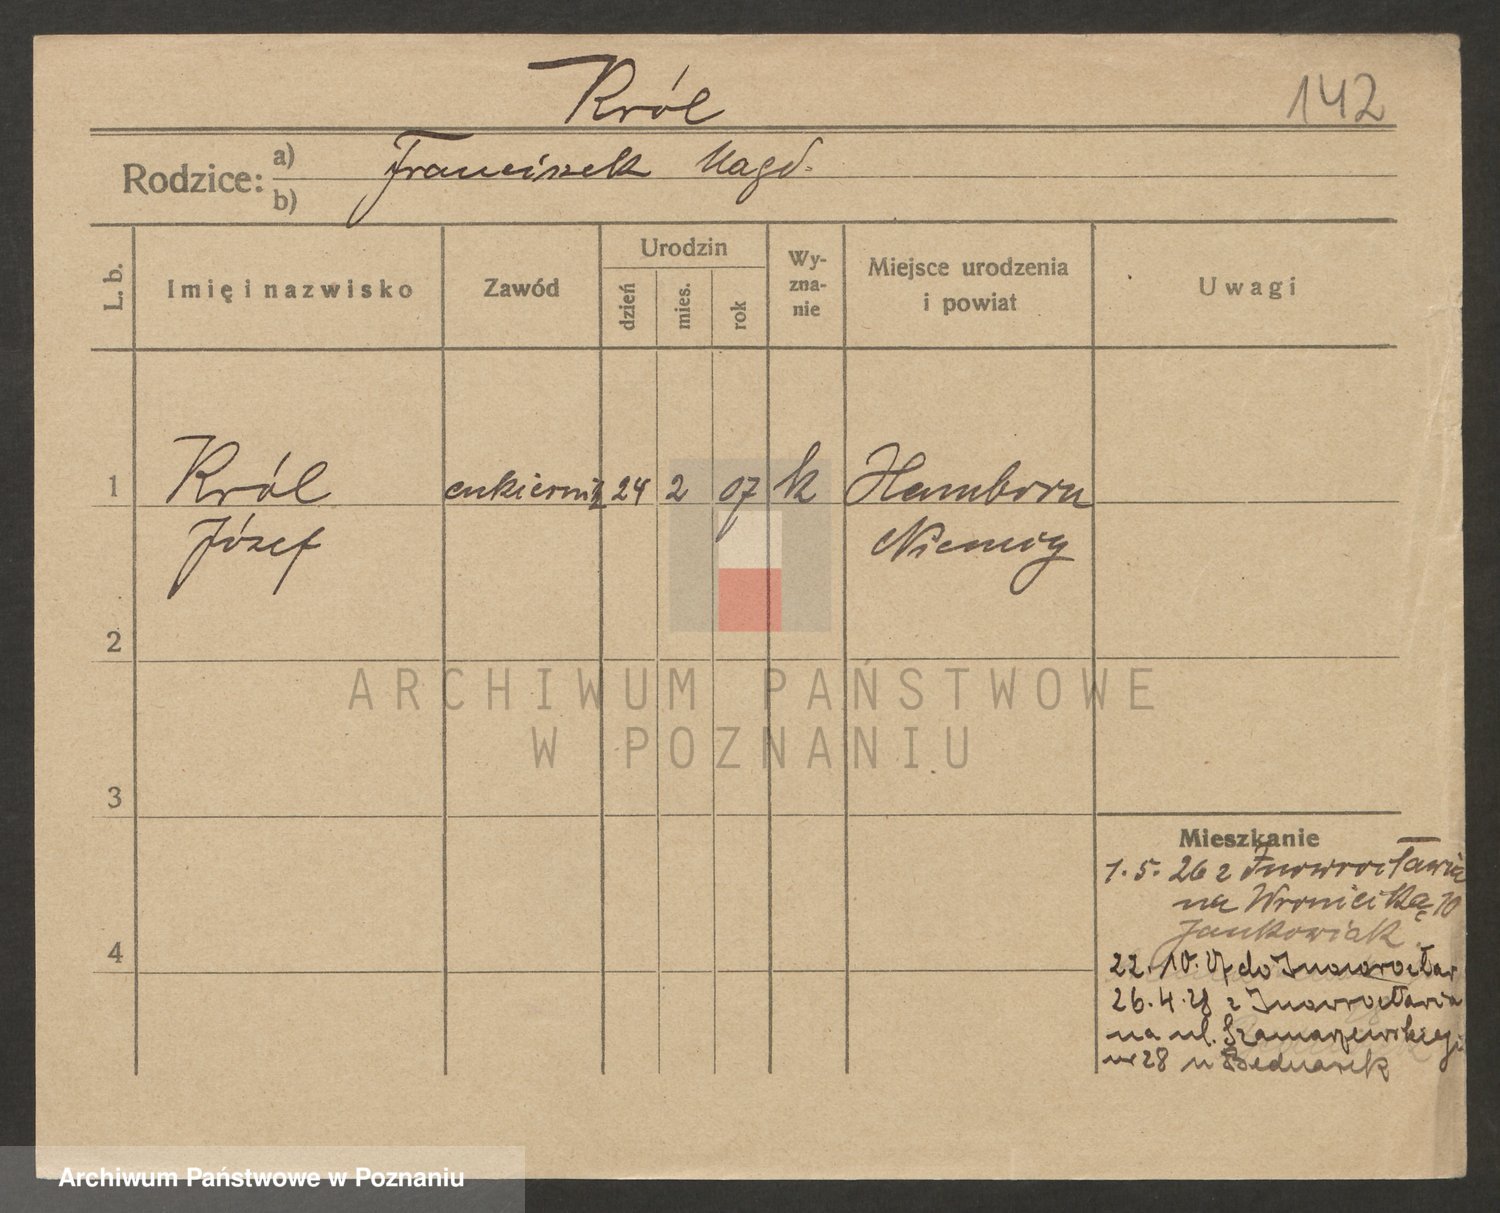 Król
142
Rodzice: a) Franciszek Magd.
b)
L. b.
Imię i nazwisko
Zawód
Urodzin
dzień
mies.
rok
Wy-
zna-
nie
Miejsce urodzenia
i powiat
Uwagi
1 Król cukiernik 24 2 07 k Hamborn
Józef Niemcy
2
ARCHIWUM PAŃSTWOWE
W POZNANIU
3
Mieszkanie
1. 5. 26 z Inowrocławia
na Wroniecką 10
Jankowiak
4
22. 10. 27 do Inowrocław
26. 4. 28 z Inowrocławia
na ul. Szamarzewskiego
nr 28 u Bednarek
Archiwum Państwowe w Poznaniu